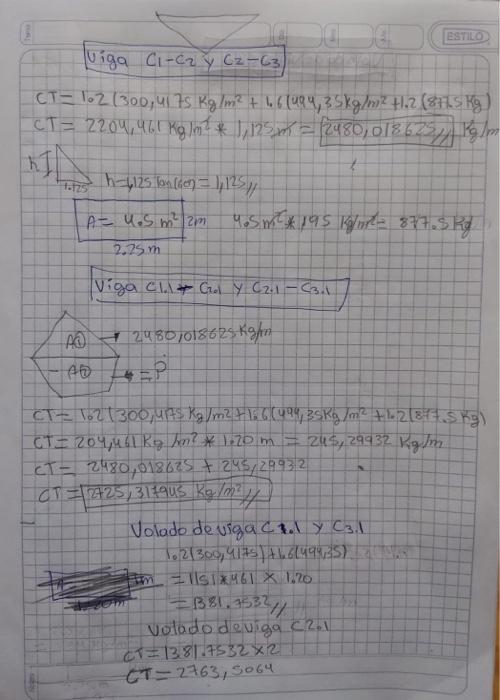 ESTILO
Viga C1-C2 y C2-C3
CT = 1.2(300,4175 Kg/m² + 1.6(494,35Kg/m² + 1.2(877.5Kg)
CT = 2204,461 Kg/m² * 1,125m = 2480,018625 Kg/m
h
1.125
h=1,125 Tan(45°) = 1,125
A = 4.5 m² 2m 4.5m² * 195 Kg/m² = 877.5 Kg
2.25m
Viga C1.1 - C2.1 y C2.1 - C3.1
A① → 2480,018625 Kg/m
- A② = P
CT = 1.2(300,4175 Kg/m2 + 1.6(494,35Kg/m² + 1.2(877.5 Kg)
CT = 204,461 Kg/m² * 1.20 m = 245,29932 Kg/m
CT = 2480,018625 + 245,29932
CT = 2725,317945 Kg/m²
Volado de viga C1.1 y C3.1
1.2(300,4175) + 1.6(494,35)
= 1151*461 x 1.20
= 1381.7532
Volado de viga C2.1
CT = 1381.7532 x 2
CT = 2763,5064